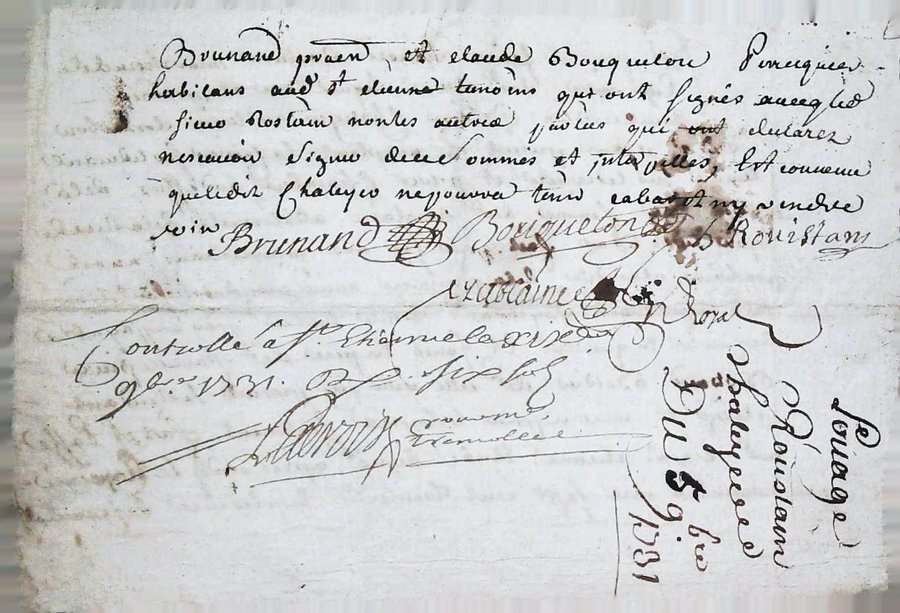 Brunand prnt, et claude Bouqueton Perruquier
habitans aud. St etienne temoins qui ont signés avecq led
sieur Rostain non les autres parties qui ont declarez
ne scavoir signer de ce sommes et interpelles, Est convenu
que ledit Chaleyer ne pourra tenir cabaret ny vendre
vin
Brunand Bouqueton Rouistain
Controllé a St. Etienne le XIXe
9bre 1731. R. six sols
Louage
Roustain
Chaleyer
Du 5 9bre
1731